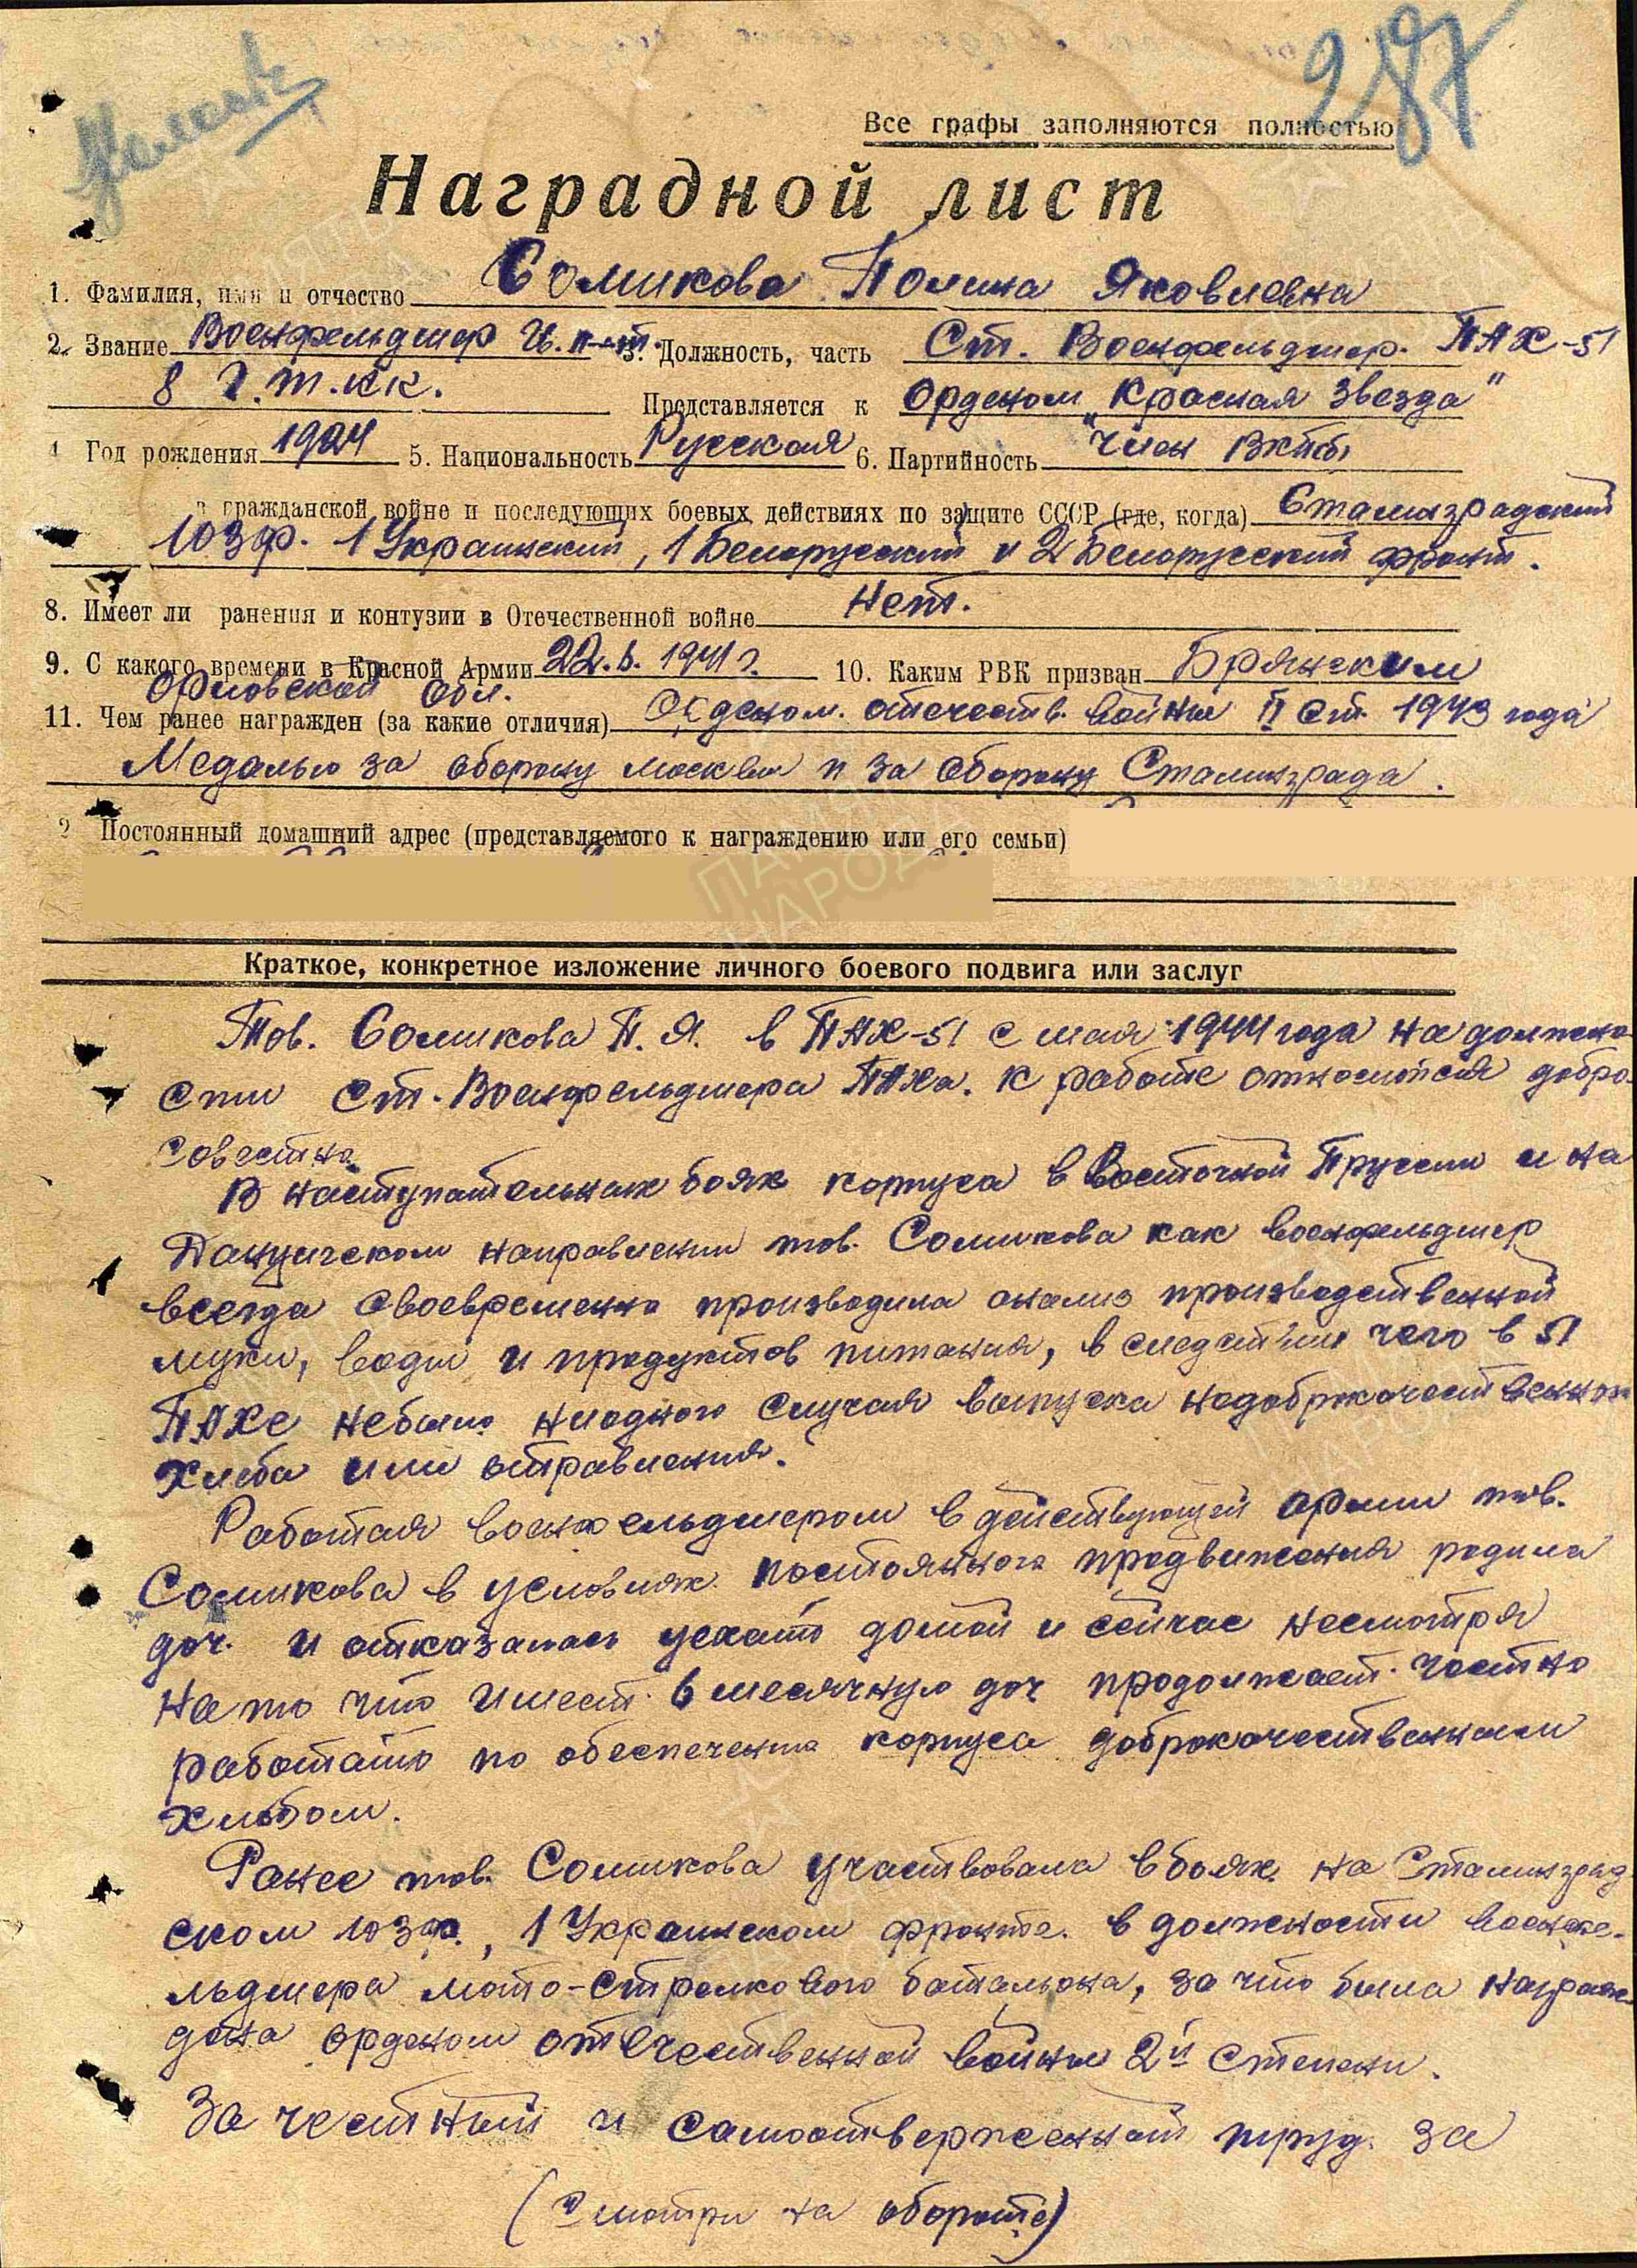 287
Все графы заполняются полностью
Наградной лист
1. Фамилия, имя и отчество Сомикова Полина Яковлевна
2. Звание Военфельдшер 3. Должность, часть Ст. Военфельдшер. ПАХ-51
8 г.т.кк. Представляется к Орденом „Красная Звезда"
Год рождения 1924 5. Национальность Русская 6. Партийность Член ВКПб
гражданской войне и последующих боевых действиях по защите СССР (где, когда) Сталинградский
ЮЗФ. 1 Украинский, 1 Белорусский и 2 Белорусский фронт.
8. Имеет ли ранения и контузии в Отечественной войне Нет.
9. С какого времени в Красной Армии 22.6.1941 г. 10. Каким РВК призван Брянским
Орловской обл.
11. Чем ранее награжден (за какие отличия) Орденом. отечеств. войны II ст. 1943 года
Медалью за оборону москвы и за оборону Сталинграда.
2 Постоянный домашний адрес (представляемого к награждению или его семьи)
Краткое, конкретное изложение личного боевого подвига или заслуг
Тов. Сомикова П.Я. в ПАХ-51 с мая 1944 года на должно-
сти ст. Военфельдшера ПАХа. К работе относится добро-
совестно.
В наступательных боях корпуса в Восточной Пруссии и на
Данцигском направлении тов. Сомикова как военфельдшер
всегда своевременно производила анализ производственной
муки, воды и продуктов питания, в следствии чего в 51
ПАХе небыло ниодного случая выпуска недоброкачественного
хлеба или отравления.
Работая военфельдшером в действующей армии тов.
Сомикова в условиях постоянного продвижения родила
доч. и отказалась уехать домой и сейчас несмотря
на то что имеет 6 месячную доч продолжает честно
работать по обеспечению корпуса доброкачественным
хлебом.
Ранее тов. Сомикова участвовала в боях на Сталинград
ском ЮЗФ., 1 Украинском фронте. в должности военфе-
льдшера мото-стрелкового батальона, за что была награж-
дена орденом отечественной войны 2й степени.
За честный и самоотверженный труд за
(Смотри на обороте)